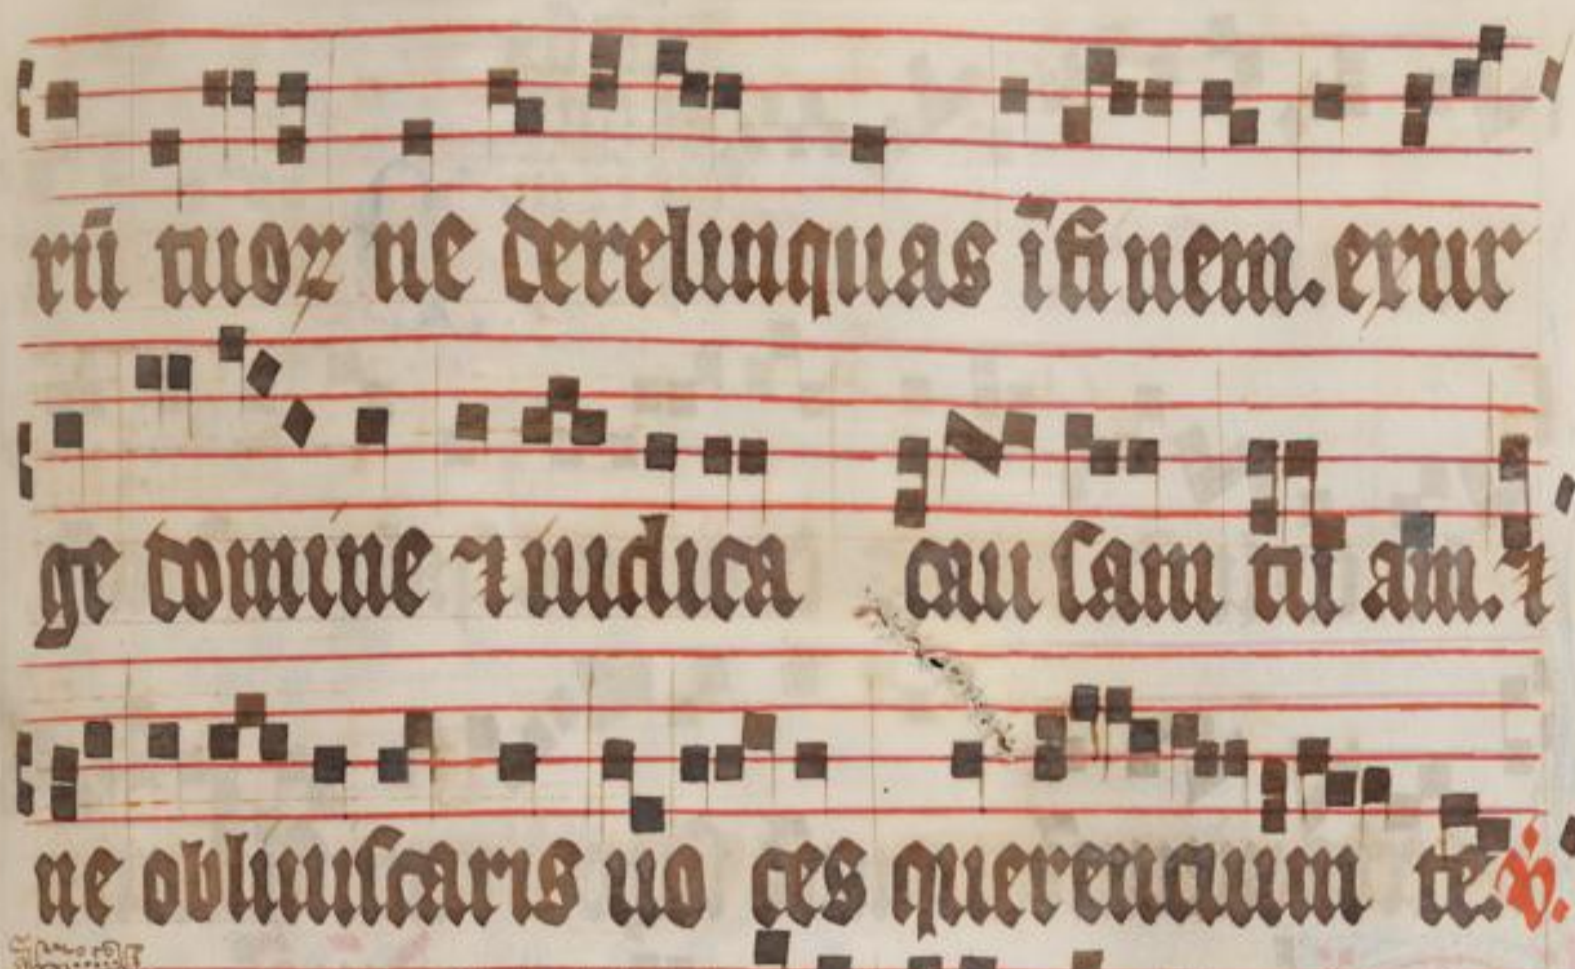 rū tuoꝝ ne derelinquas ī finem. exur
ge domine ⁊ iudica cau sam tu am. ⁊
ne obliuiscaris uo ces querencium te. ℣.